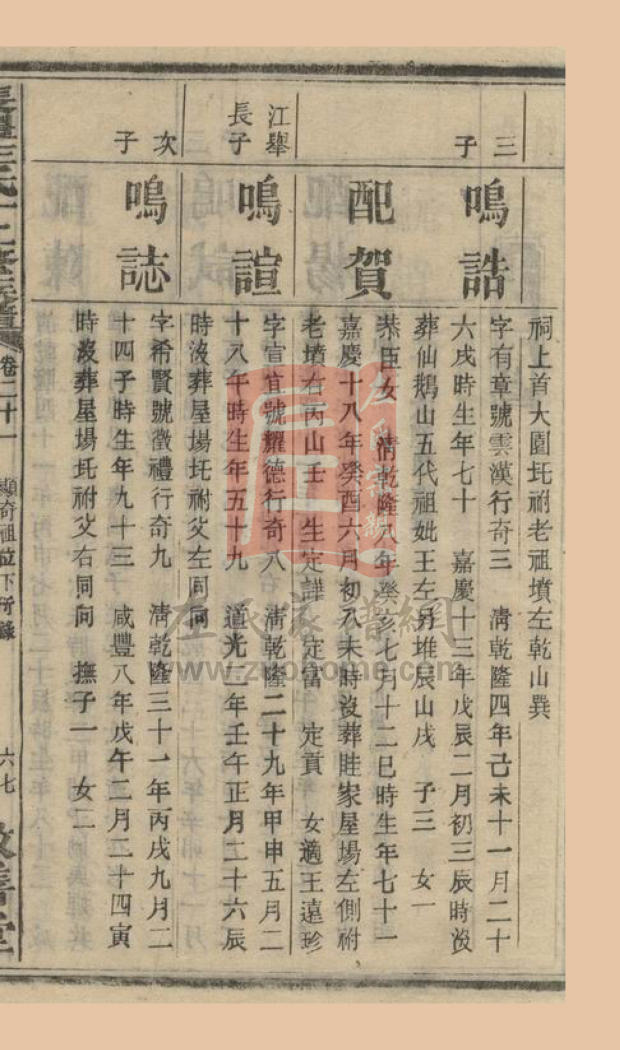 祠上首大園圫祔老祖墳左乾山巽
三子
鳴誥
字有章號雲漢行奇三 清乾隆四年己未十一月二十
六戌時生年七十 嘉慶十三年戊辰二月初三辰時沒
葬仙鵝山五代祖妣王左另堆辰山戌 子三 女一
配賀
恭臣女 清乾隆八年癸亥七月十二巳時生年七十一
嘉慶十八年癸酉六月初八未時沒葬眭家屋場左側祔
老墳右丙山壬 生定譁 定富 定貢 女適王遠珍
江舉長子
鳴諠
字宣宜號耀德行奇八 清乾隆二十九年甲申五月二
十八午時生年五十九 道光二年壬午正月二十六辰
時沒葬屋場圫祔父左同向
次子
鳴誌
字希賢號徵禮行奇九 清乾隆三十一年丙戌九月二
十四子時生年九十三 咸豐八年戊午二月二十四寅
時沒葬屋場圫祔父右同向 撫子一 女二
卷二十一 顯奇祖位下所錄 六七
左氏家譜網
www.zuohome.com